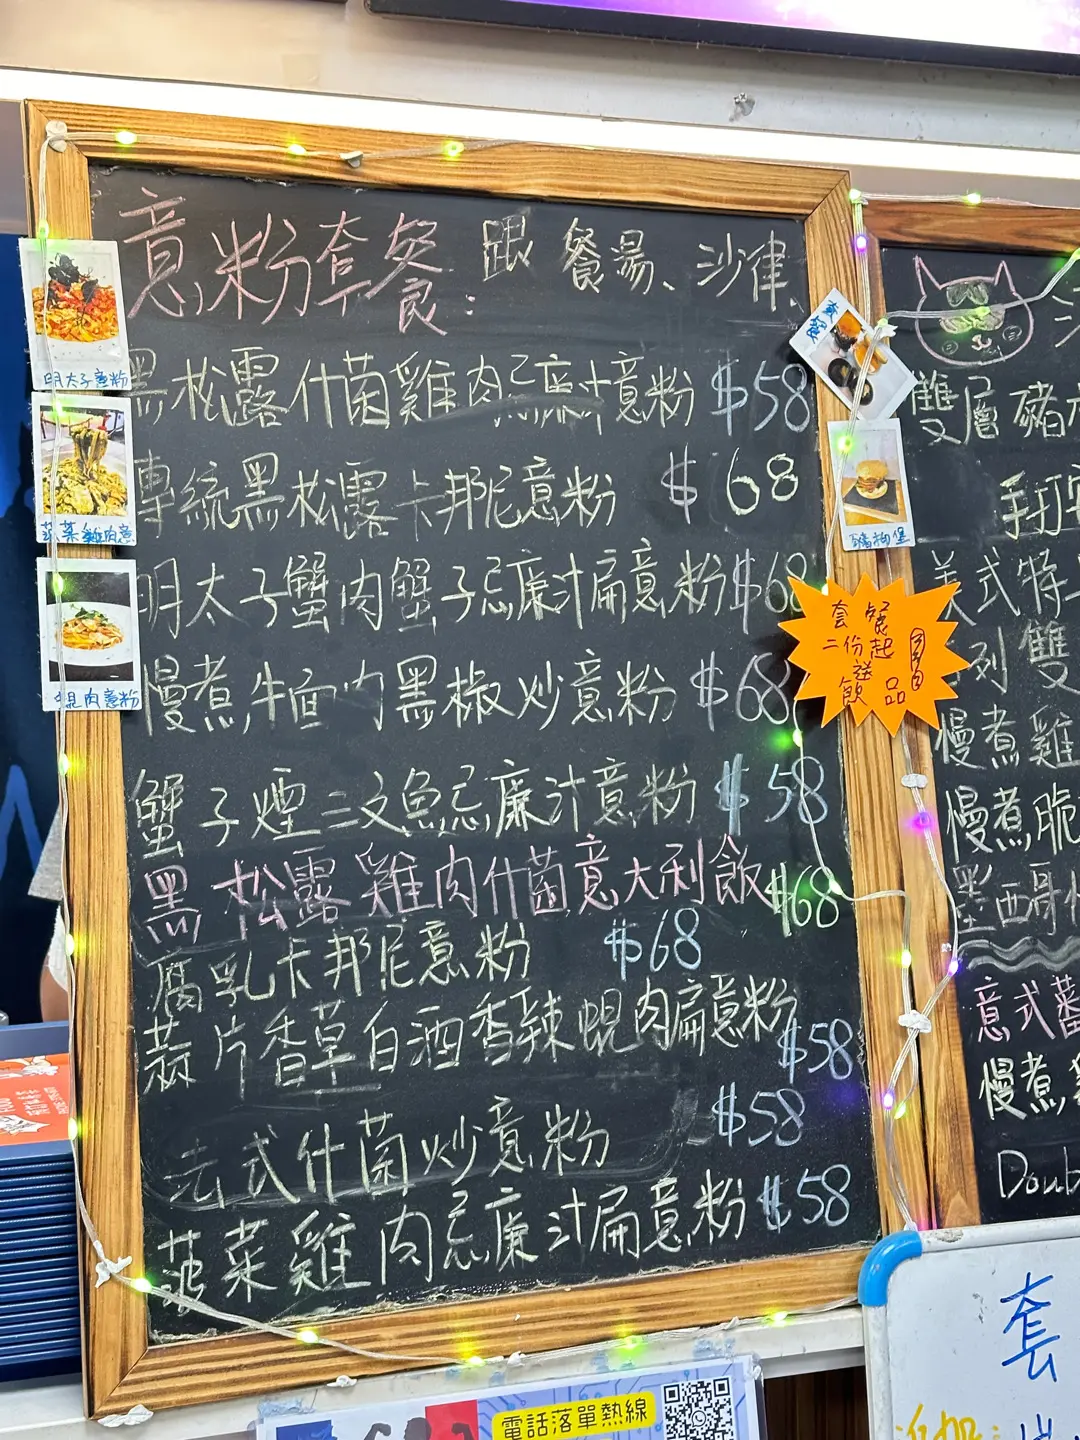 意粉套餐：跟餐湯、沙律、
黑松露什菌雞肉忌廉汁意粉 $58
專統黑松露卡邦尼意粉 $68
明太子蟹肉蟹子忌廉汁扁意粉 $68
慢煮牛面肉黑椒炒意粉 $68
蟹子煙三文魚忌廉汁意粉 $58
黑松露雞肉什菌意大利飯 $68
腐乳卡邦尼意粉 $68
蒜片香草白酒香辣蜆肉扁意粉 $58
法式什菌炒意粉 $58
菠菜雞肉忌廉汁扁意粉 $58
明太子意粉
菠菜雞肉意
蜆肉意粉
套餐
豬柳堡
套餐
二份起
送
飲品
雙層豬
手打
美式特
列雙
慢煮雞
慢煮脆
墨西哥
意式
慢煮
Doub
套
電話落單熱線